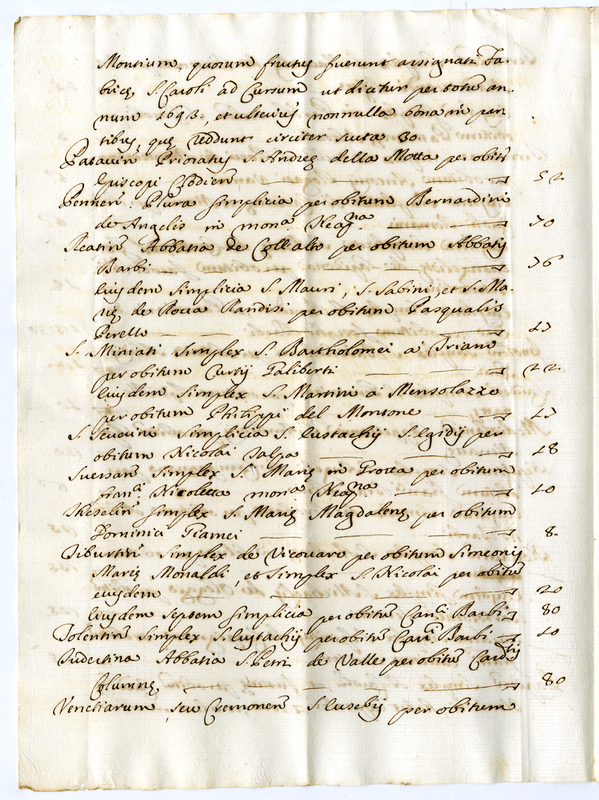 Montium, quorum fructus fuerunt assignati Fa-
bricę S. Caroli ad Cursum ut dicitur per totum an-
num 1693, et ulterius nonnulla bona in par-
tibus, quę reddunt circiter scuta 30
Patavin̄ Prioratus S. Andreę della Motta per obitū
Episcopi Clodien̄ 52
Pennen̄ Plura simplicia per obitum Bernardini
de Angelis in mon.a Neap.na 70
Reatin̄ Abbatia de Collalto per obitum Abbatis
Barbi 36
Eiusdem simplicia S. Mauri, S. Sabini, et S. Ma-
rię de Rocca Randisi per obitum Pasqualis
Perello 43
S. Miniati simplex S. Bartholomei a Triano
per obitum Curtij Taliberti 122
Eiusdem simplex S. Martini a Mensolazzo
per obitum Philippi del Montone 43
S. Severini simplicia S. Eustachij S. Egidij per
obitum Nicolai Salpa 48
Suessan̄ simplex S. Marię in per obitum
Fran.ci Nicoletta mon.a Neap.na 40
simplex S. Marię Magdalenę per obitum
Dominici 8.
Tiburtin̄ simplex de Vicovaro per obitum Simeonis
Marię Monaldi, et simplex S. Nicolai per obitū
eiusdem 20
Eiusdem septem simplicia per obitū Car.li Barbi 80
Tolentin̄ simplex S. Eustachij per obitū Car.li Barbi 40
Tudertina Abbatia S. Petri de Valle per obitū Card.lis
Columnę 80
Venetiarum, seu Cremonen̄ S. Eusebij per obitum